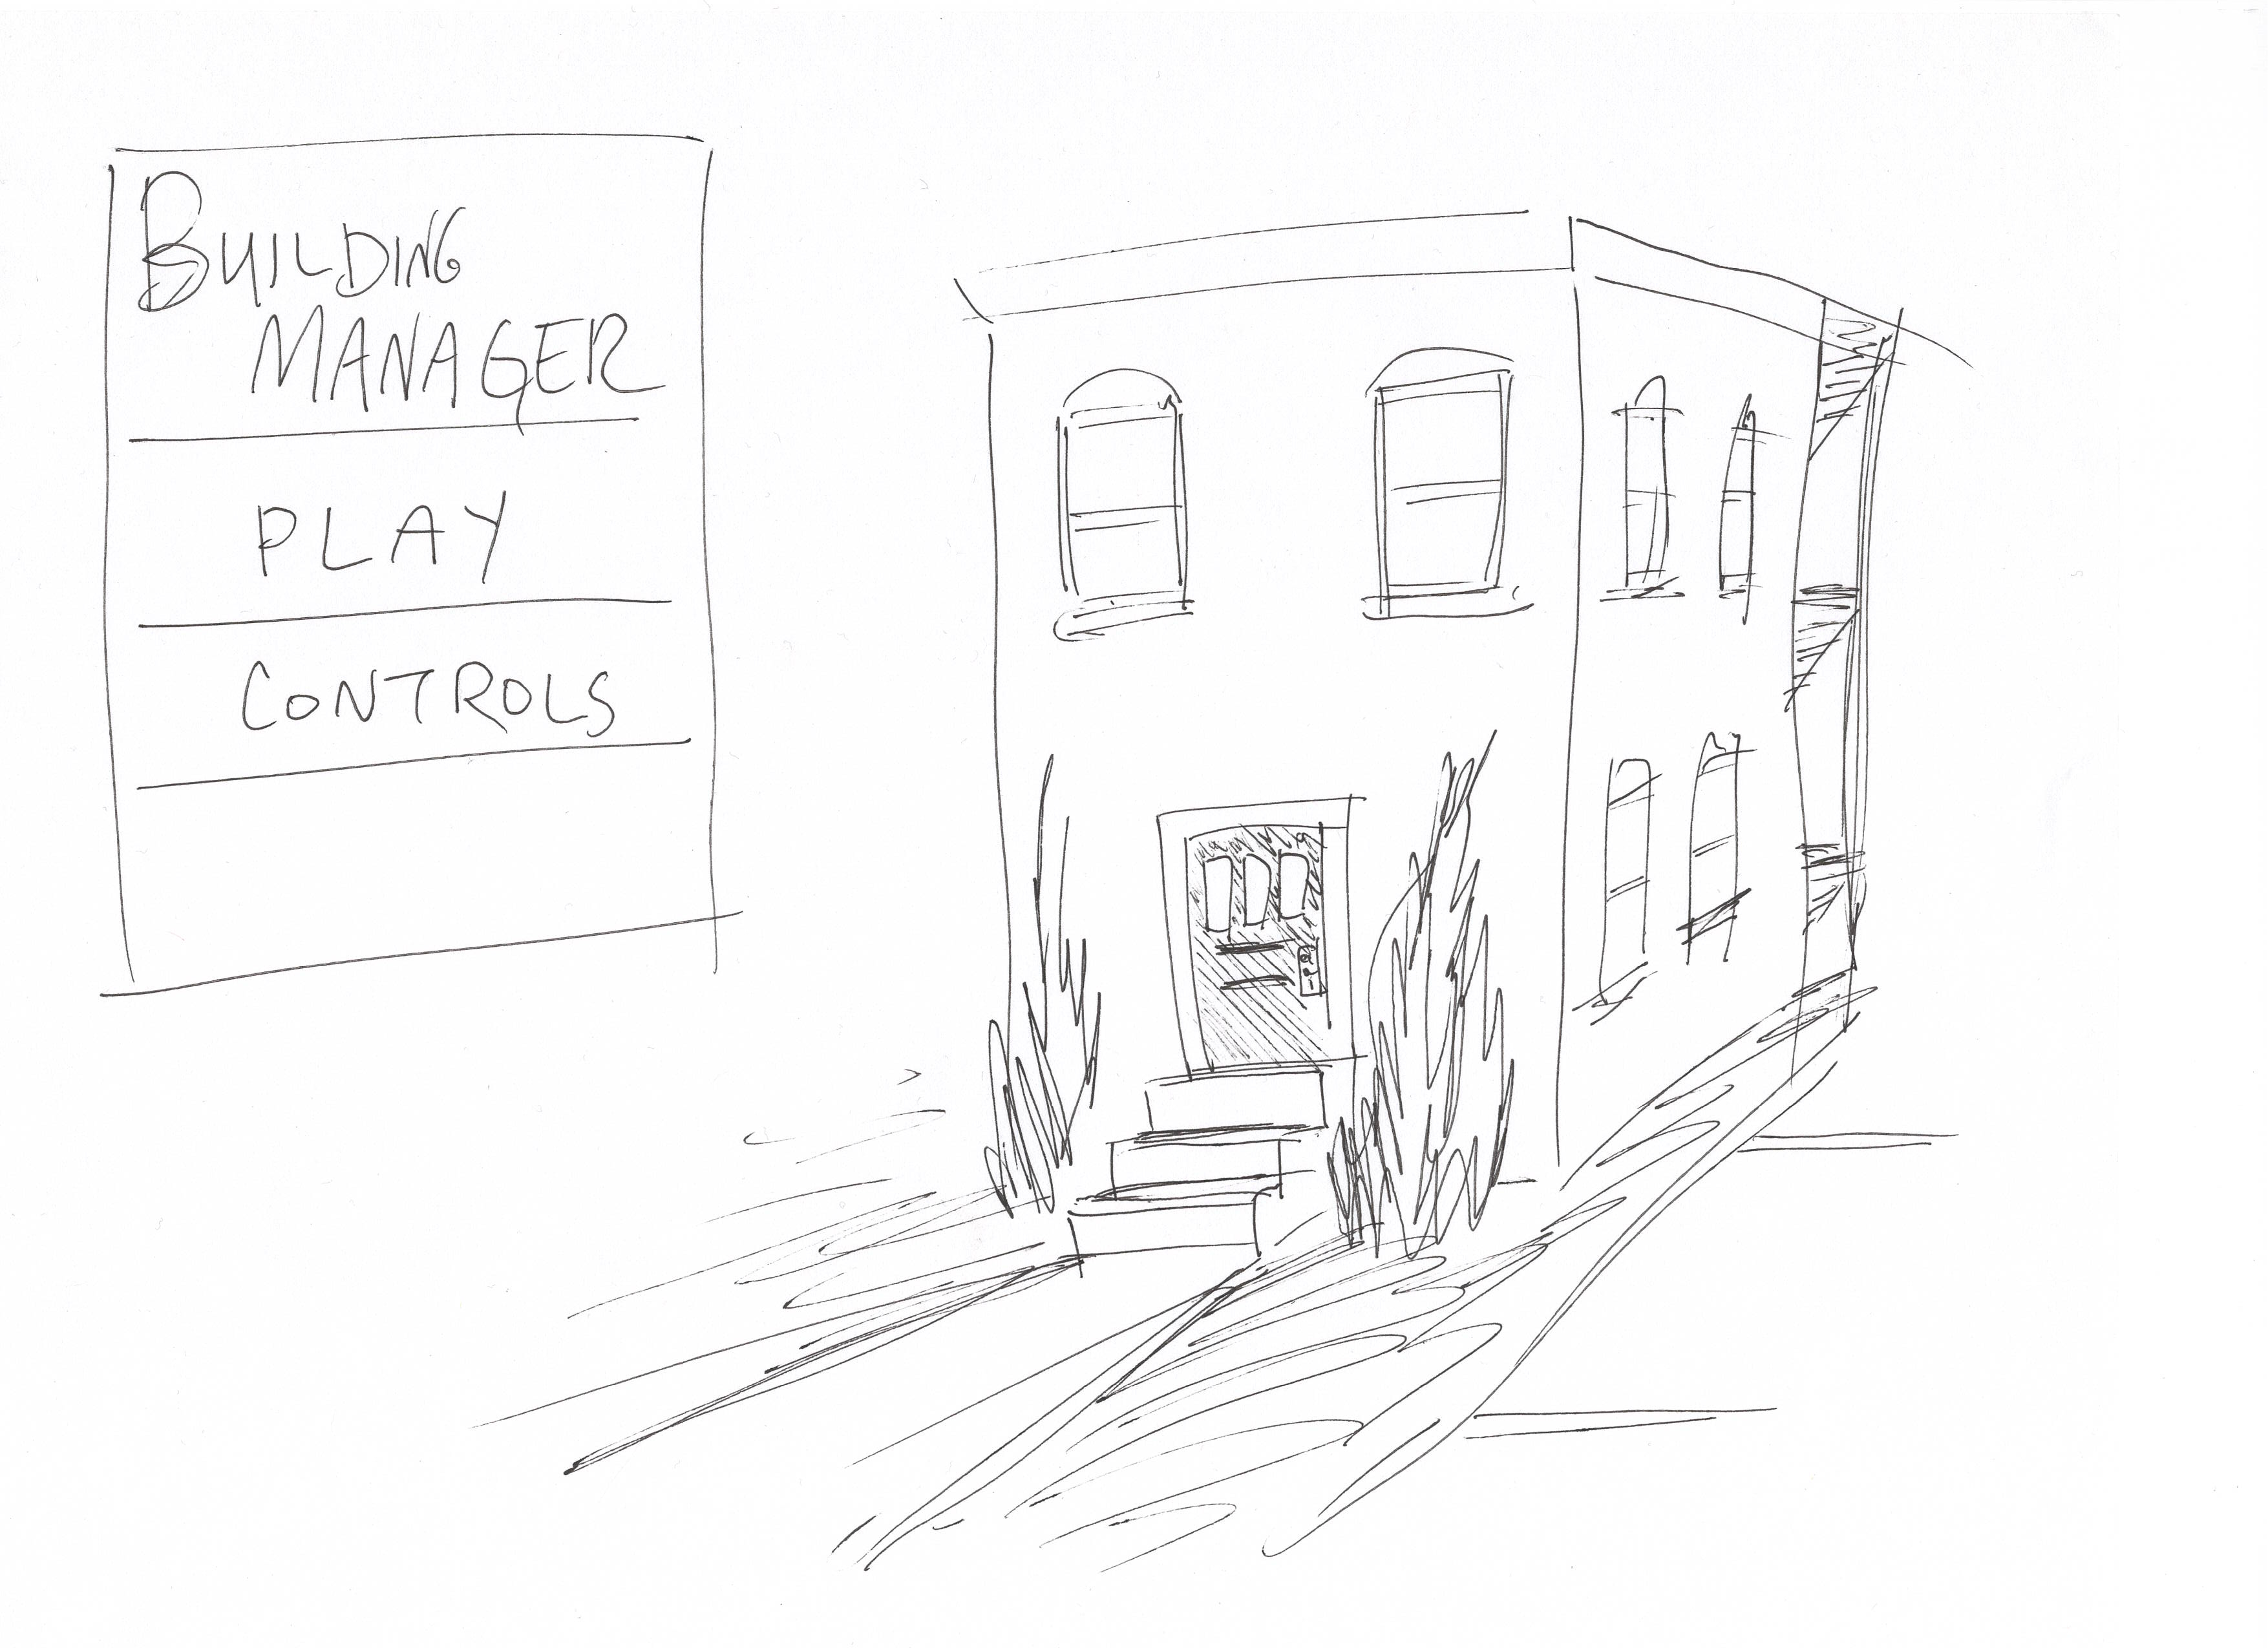 BUILDING
MANAGER
PLAY
CONTROLS